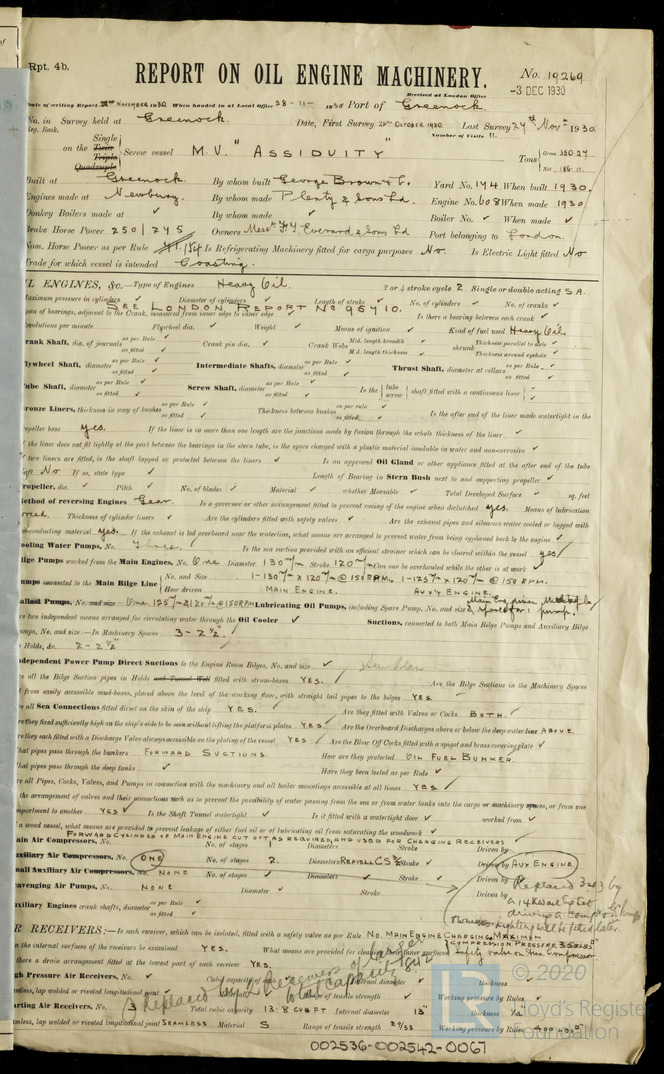 Rpt. 4b.
REPORT ON OIL ENGINE MACHINERY.
No. 19269
Received at London Office
-3 DEC 1930
Date of writing Report 22nd NOVEMBER 1930 When handed in at Local Office 28-11-1930 Port of Greenock.
No. in Survey held at Greenock. Date, First Survey 29th OCTOBER 1930. Last Survey 27th Nov. 1930.
Reg. Book. Number of Visits 11.
Single
on the Twin Screw vessel M.V. "ASSIDUITY"
Triple
Quadruple
Tons Gross 350.27
Net 186.11
Built at Greenock By whom built George Brown & Co. Yard No. 174 When built 1930.
Engines made at Newbury. By whom made Plenty & Sons Ld. Engine No. 608 When made 1930
Donkey Boilers made at ✓ By whom made ✓ Boiler No. ✓ When made ✓
Brake Horse Power 250/245 Owners Messrs F.T. Everard & Sons Ld Port belonging to London.
Nom. Horse Power as per Rule Is Refrigerating Machinery fitted for cargo purposes No. Is Electric Light fitted No
Trade for which vessel is intended Coasting.
OIL ENGINES, &c.—Type of Engines Heavy Oil. 2 or 4 stroke cycle 2 Single or double acting S.A.
Maximum pressure in cylinders Diameter of cylinders ✓ Length of stroke ✓ No. of cylinders ✓ No. of cranks ✓
SEE LONDON REPORT No 95710.
Span of bearings, adjacent to the Crank, measured from inner edge to inner edge Is there a bearing between each crank ✓
Revolutions per minute Flywheel dia. ✓ Weight ✓ Means of ignition ✓ Kind of fuel used Heavy Oil
Crank Shaft, dia. of journals as per Rule as fitted Crank pin dia. ✓ Crank Webs Mid. length breadth ✓ Mid. length thickness shrunk Thickness parallel to axis Thickness around eyehole
Flywheel Shaft, diameter as per Rule as fitted Intermediate Shafts, diameter as per Rule as fitted Thrust Shaft, diameter at collars as per Rule as fitted
Tube Shaft, diameter as per Rule as fitted Screw Shaft, diameter as per Rule as fitted Is the tube screw shaft fitted with a continuous liner ✓
Bronze Liners, thickness in way of bushes as per Rule as fitted Thickness between bushes as per rule as fitted Is the after end of the liner made watertight in the
propeller boss yes. If the liner is in more than one length are the junctions made by fusion through the whole thickness of the liner ✓
If the liner does not fit tightly at the part between the bearings in the stern tube, is the space charged with a plastic material insoluble in water and non-corrosive ✓
If two liners are fitted, is the shaft lapped or protected between the liners ✓ Is an approved Oil Gland or other appliance fitted at the after end of the tube
shaft No If so, state type ✓ Length of Bearing in Stern Bush next to and supporting propeller ✓
Propeller, dia. ✓ Pitch ✓ No. of blades ✓ Material ✓ whether Moveable ✓ Total Developed Surface ✓ sq. feet
Method of reversing Engines Gear Is a governor or other arrangement fitted to prevent racing of the engine when declutched yes. Means of lubrication
Forced. Thickness of cylinder liners ✓ Are the cylinders fitted with safety valves ✓ Are the exhaust pipes and silencers water cooled or lagged with
non-conducting material yes. If the exhaust is led overboard near the waterline, what means are arranged to prevent water from being syphoned back to the engine ✓
Cooling Water Pumps, No. Three. Is the sea suction provided with an efficient strainer which can be cleared within the vessel yes
Bilge Pumps worked from the Main Engines, No. One Diameter 130 m/m Stroke 120 m/m Can one be overhauled while the other is at work ✓
Pumps connected to the Main Bilge Line No. and Size 1-130 m/m x 120 m/m @ 150 RPM. 1-125 m/m x 120 m/m @ 150 RPM.
How driven MAIN ENGINE. AUXY ENGINE.
Ballast Pumps, No. and size One 125 m/m x 120 m/m @ 150 RPM Lubricating Oil Pumps, including Spare Pump, No. and size
Are two independent means arranged for circulating water through the Oil Cooler ✓ Suctions, connected to both Main Bilge Pumps and Auxiliary Bilge
Pumps, No. and size:—In Machinery Spaces 3 - 2½".
In Holds, &c. 2 - 2½"
Independent Power Pump Direct Suctions to the Engine Room Bilges, No. and size ✓
Are all the Bilge Suction pipes in Holds and Tunnel Well fitted with strum-boxes YES. Are the Bilge Suctions in the Machinery Spaces
led from easily accessible mud-boxes, placed above the level of the working floor, with straight tail pipes to the bilges YES.
Are all Sea Connections fitted direct on the skin of the ship YES. Are they fitted with Valves or Cocks BOTH.
Are they fixed sufficiently high on the ship's side to be seen without lifting the platform plates YES. Are the Overboard Discharges above or below the deep water line ABOVE.
Are they each fitted with a Discharge Valve always accessible on the plating of the vessel YES Are the Blow Off Cocks fitted with a spigot and brass covering plate ✓
What pipes pass through the bunkers FORWARD SUCTIONS. How are they protected OIL FUEL BUNKER.
What pipes pass through the deep tanks ✓ Have they been tested as per Rule ✓
Are all Pipes, Cocks, Valves, and Pumps in connection with the machinery and all boiler mountings accessible at all times YES.
Is the arrangement of valves and their connections such as to prevent the possibility of water passing from the sea or from water tanks into the cargo or machinery spaces, or from one
compartment to another YES Is the Shaft Tunnel watertight ✓ Is it fitted with a watertight door ✓ worked from ✓
If a wood vessel, what means are provided to prevent leakage of either fuel oil or of lubricating oil from saturating the woodwork ✓
FORWARD CYLINDER OF MAIN ENGINE CUT OUT, AS REQUIRED, AND USED FOR CHARGING RECEIVERS
Main Air Compressors, No. No. of stages Diameters Stroke Driven by
Auxiliary Air Compressors, No. ONE No. of stages 2. Diameters REAVELL CS Stroke ✓ Driven by AUX ENGINE
Small Auxiliary Air Compressors, No. NONE No. of stages ✓ Diameters ✓ Stroke ✓ Driven by
Scavenging Air Pumps, No. NONE Diameter ✓ Stroke Driven by
Replaced 3 by
Auxiliary Engines crank shafts, diameter as per Rule as fitted
AIR RECEIVERS:—Is each receiver, which can be isolated, fitted with a safety valve as per Rule No. MAIN ENGINE CHARGING MAXIMUM
COMPRESSION PRESSURE 350 LBS □"
Can the internal surfaces of the receivers be examined YES. What means are provided for cleaning their inner surfaces Safety valve on Aux Compressor
Is there a drain arrangement fitted at the lowest part of each receiver YES.
High Pressure Air Receivers, No. Cubic capacity of each Internal diameter ✓ thickness
Seamless, lap welded or riveted longitudinal joint ✓ Material Range of tensile strength ✓ Working pressure by Rules
Replaced by 2 Receivers
Starting Air Receivers, No. 3 Total cubic capacity 13.8 CUB FT Internal diameter 15" thickness ½"
Seamless, lap welded or riveted longitudinal joint SEAMLESS Material S Range of tensile strength 29/33 Working pressure by Rules 400 LBS □"
© 2020
Lloyd's Register
Foundation
002536-002542-0067